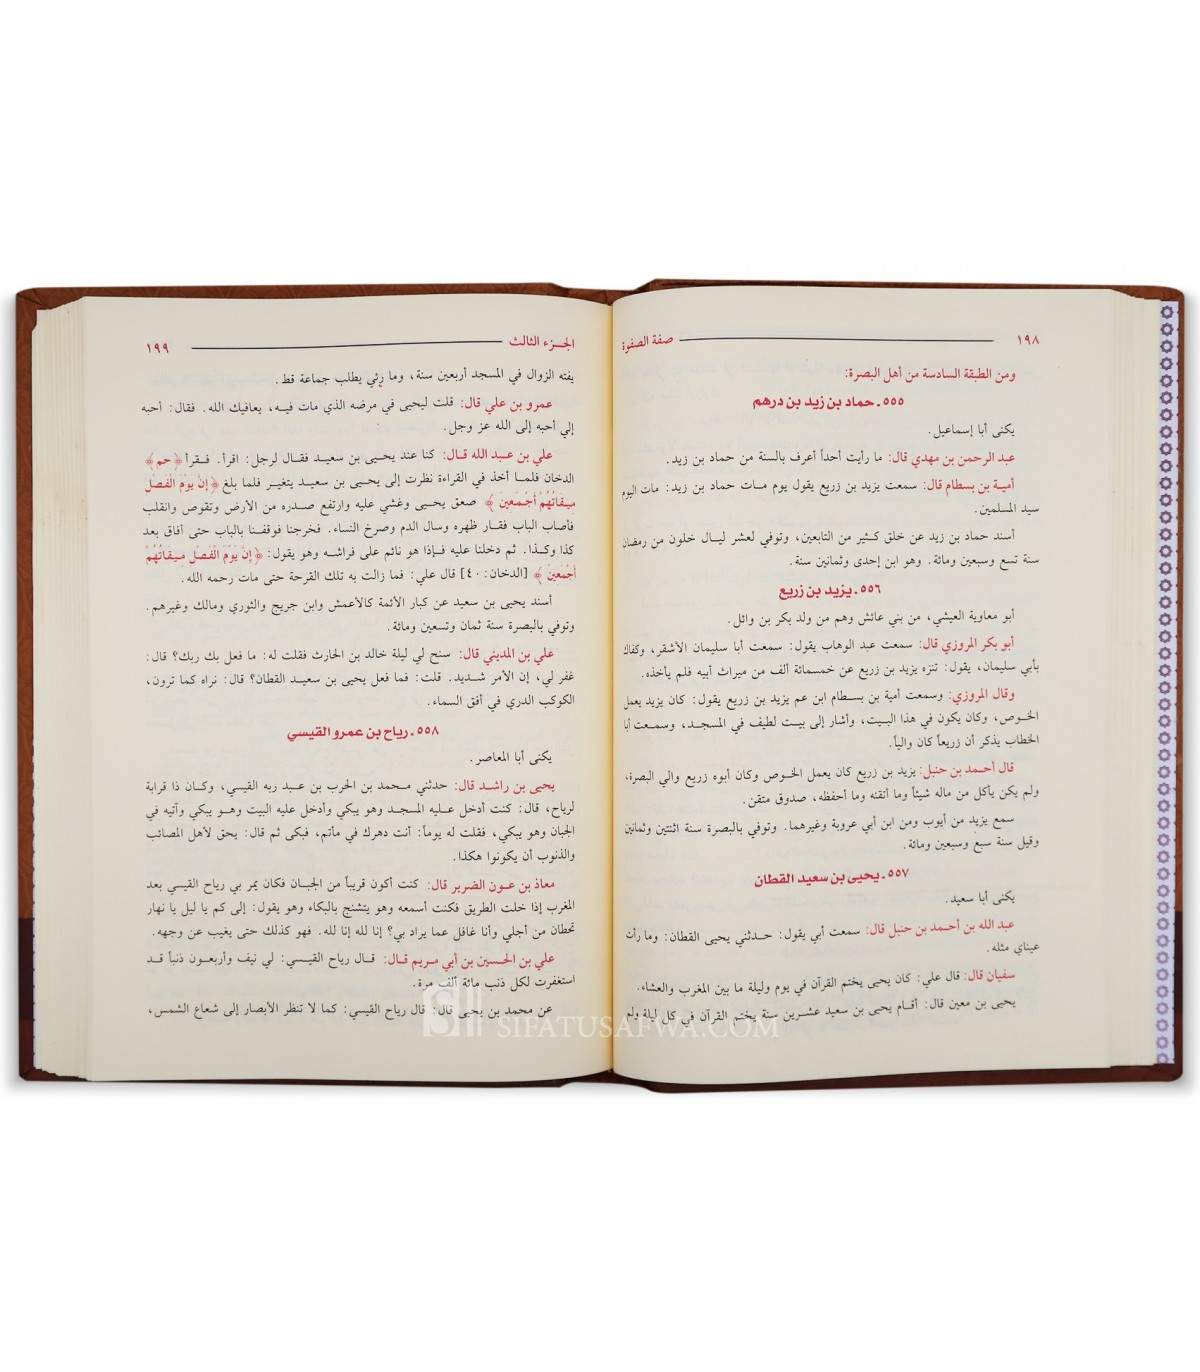 ١٩٨ صفة الصفوة
ومن الطبقة السادسة من أهل البصرة:
٥٥٥ ـ حماد بن زيد بن درهم
يكنى أبا إسماعيل.
عبد الرحمن بن مهدي قال: ما رأيت أحداً أعرف بالسنة من حماد بن زيد.
أمية بن بسطام قال: سمعت يزيد بن زريع يقول يوم مات حماد بن زيد: مات اليوم
سيد المسلمين.
أسند حماد بن زيد عن خلق كثير من التابعين، وتوفي لعشر ليال خلون من رمضان
سنة تسع وسبعين ومائة. وهو ابن إحدى وثمانين سنة.
٥٥٦ ـ يزيد بن زريع
أبو معاوية العيشي، من بني عائش وهم من ولد بكر بن وائل.
أبو بكر المروزي قال: سمعت عبد الوهاب يقول: سمعت أبا سليمان الأشقر، وكفاك
بأبي سليمان، يقول: تنزه يزيد بن زريع عن خمسمائة ألف من ميراث أبيه فلم يأخذه.
وقال المروزي: وسمعت أمية بن بسطام ابن عم يزيد بن زريع يقول: كان يزيد يعمل
الخوص، وكان يكون في هذا البيت، وأشار إلى بيت لطيف في المسجد، وسمعت أبا
الخطاب يذكر أن زريعاً كان والياً.
قال أحمد بن حنبل: يزيد بن زريع كان يعمل الخوص وكان أبوه زريع والي البصرة،
ولم يكن يأكل من ماله شيئاً وما أتقنه وما أحفظه، صدوق متقن.
سمع يزيد من أيوب ومن ابن أبي عروبة وغيرهما. وتوفي بالبصرة سنة اثنتين وثمانين
وقيل سنة سبع وسبعين ومائة.
٥٥٧ ـ يحيى بن سعيد القطان
يكنى أبا سعيد.
عبد الله بن أحمد بن حنبل قال: سمعت أبي يقول: حدثني يحيى القطان: وما رأت
عيناي مثله.
سفيان قال: قال علي: كان يحيى يختم القرآن في يوم وليلة ما بين المغرب والعشاء.
يحيى بن معين قال: أقام يحيى بن سعيد عشرين سنة يختم القرآن في كل ليلة ولم
الجزء الثالث ١٩٩
يفته الزوال في المسجد أربعين سنة، وما رئي يطلب جماعة قط.
عمرو بن علي قال: قلت ليحيى في مرضه الذي مات فيه، يعافيك الله. فقال: أحبه
إلي أحبه إلى الله عز وجل.
علي بن عبد الله قال: كنا عند يحيى بن سعيد فقال لرجل: اقرأ. فقرأ ﴿حم﴾
الدخان فلما أخذ في القراءة نظرت إلى يحيى بن سعيد يتغير فلما بلغ ﴿إِنَّ يَوْمَ الْفَصْلِ
مِيقَاتُهُمْ أَجْمَعِينَ﴾ صعق يحيى وغشي عليه وارتفع صدره من الأرض وتقوص وانقلب
فأصاب الباب فقار ظهره وسال الدم وصرخ النساء. فخرجنا فوقفنا بالباب حتى أفاق بعد
كذا وكذا. ثم دخلنا عليه فإذا هو نائم على فراشه وهو يقول: ﴿إِنَّ يَوْمَ الْفَصْلِ مِيقَاتُهُمْ
أَجْمَعِينَ﴾ [الدخان: ٤٠] قال علي: فما زالت به تلك القرحة حتى مات رحمه الله.
أسند يحيى بن سعيد عن كبار الأئمة كالأعمش وابن جريج والثوري ومالك وغيرهم.
وتوفي بالبصرة سنة ثمان وتسعين ومائة.
علي بن المديني قال: سنح لي ليلة خالد بن الحارث فقلت له: ما فعل بك ربك؟ قال:
غفر لي، إن الأمر شديد. قلت: فما فعل يحيى بن سعيد القطان؟ قال: نراه كما ترون،
الكوكب الدري في أفق السماء.
٥٥٨ ـ رياح بن عمرو القيسي
يكنى أبا المعاصر.
يحيى بن راشد قال: حدثني محمد بن الحرب بن عبد ربه القيسي، وكان ذا قرابة
لرياح، قال: كنت أدخل عليه المسجد وهو يبكي وأدخل عليه البيت وهو يبكي وآتيه في
الجبان وهو يبكي، فقلت له يوماً: أنت دهرك في مأتم، فبكى ثم قال: يحق لأهل المصائب
والذنوب أن يكونوا هكذا.
معاذ بن عون الضرير قال: كنت أكون قريباً من الجبان فكان يمر بي رياح القيسي بعد
المغرب إذا خلت الطريق فكنت أسمعه وهو يتشنج بالبكاء وهو يقول: إلى كم يا ليل يا نهار
تحطان من أجلي وأنا غافل عما يراد بي؟ إنا لله إنا لله. فهو كذلك حتى يغيب عن وجهه.
علي بن الحسين بن أبي مريم قال: قال رياح القيسي: لي نيف وأربعون ذنباً قد
استغفرت لكل ذنب مائة ألف مرة.
عن محمد بن يحيى قال: قال رياح القيسي: كما لا تنظر الأبصار إلى شعاع الشمس،
SIFATUSAFWA.COM